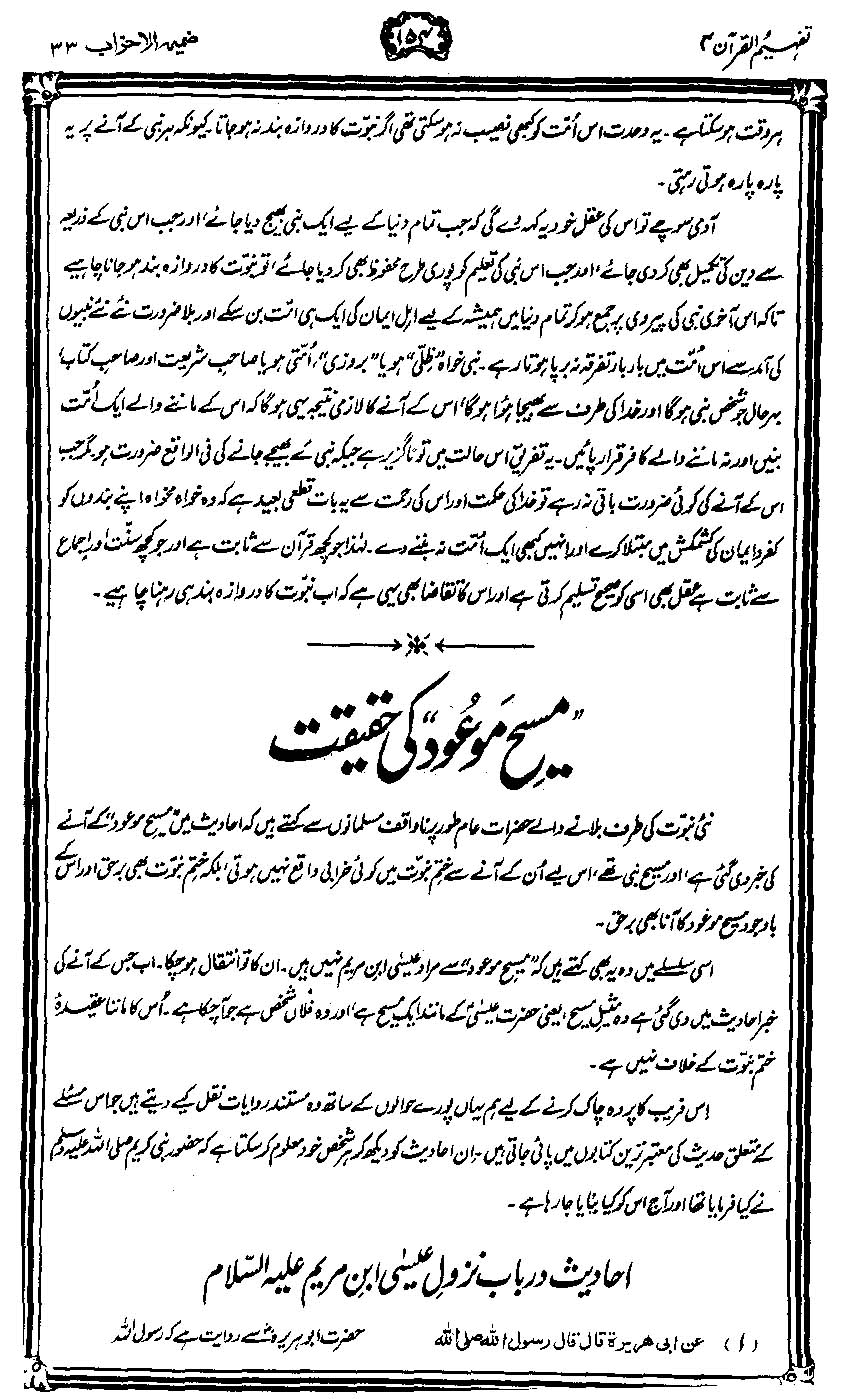 تفہیم القرآن ۴
۱۵۴
ضمیمہ الاحزاب ۳۳
ہر وقت ہو سکتا ہے۔ یہ وحدت اس اُمّت کو کبھی نصیب نہ ہو سکتی تھی اگر نبوّت کا دروازہ بند نہ ہو جاتا۔ کیونکہ ہر نبی کے آنے پر یہ
پارہ پارہ ہوتی رہتی۔
آدمی سوچے تو اس کی عقل خود یہ کہہ دے گی کہ جب تمام دنیا کے لیے ایک نبی بھیج دیا جائے، اور جب اس نبی کے ذریعہ
سے دین کی تکمیل بھی کر دی جائے، اور جب اس نبی کی تعلیم کو پوری طرح محفوظ بھی کر دیا جائے، تو نبوّت کا دروازہ بند ہو جانا چاہیے
تاکہ اس آخری نبی کی پیروی پر جمع ہو کر تمام دنیا میں ہمیشہ کے لیے اہل ایمان کی ایک ہی امّت بن سکے اور بلا ضرورت نئے نئے نبیوں
کی آمد سے اس اُمّت میں بار بار تفرقہ نہ برپا ہوتا رہے۔ نبی خواہ ”ظِلّی“ ہو یا ”بروزی“، اُمّتی ہو یا صاحب شریعت اور صاحب کتاب،
بہرحال جو شخص نبی ہوگا اور خدا کی طرف سے بھیجا ہؤا ہوگا، اس کے آنے کا لازمی نتیجہ یہی ہوگا کہ اس کے ماننے والے ایک اُمّت
بنیں اور نہ ماننے والے کافر قرار پائیں۔ یہ تفریق اس حالت میں تو ناگزیر ہے جبکہ نبی کے بھیجے جانے کی فی الواقع ضرورت ہو مگر جب
اس کے آنے کی کوئی ضرورت باقی نہ رہے تو خدا کی حکمت اور اس کی رحمت سے یہ بات قطعی بعید ہے کہ وہ خواہ مخواہ اپنے بندوں کو
کفر و ایمان کی کشمکش میں مبتلا کرے اور انہیں کبھی ایک اُمّت نہ بننے دے۔ لہٰذا جو کچھ قرآن سے ثابت ہے اور جو کچھ سنّت اور اجماع
سے ثابت ہے عقل بھی اسی کو صحیح تسلیم کرتی ہے اور اس کا تقاضا بھی یہی ہے کہ اب نبوّت کا دروازہ بند ہی رہنا چاہیے۔
”مسیحِ مَوعُود“ کی حقیقت
نئی نبوّت کی طرف بلانے والے حضرات عام طور پر ناواقف مسلمانوں سے کہتے ہیں کہ احادیث میں ”مسیح موعود“ کے آنے
کی خبر دی گئی ہے، اور مسیح نبی تھے، اس لیے اُن کے آنے سے ختم نبوّت میں کوئی خرابی واقع نہیں ہوتی، بلکہ ختمِ نبوّت بھی برحق اور اس کے
باوجود مسیح موعود کا آنا بھی برحق۔
اسی سلسلے میں وہ یہ بھی کہتے ہیں کہ ”مسیح موعود“ سے مراد عیسٰی ابن مریم نہیں ہیں۔ ان کا تو انتقال ہو چکا۔ اب جس کے آنے کی
خبر احادیث میں دی گئی ہے وہ مثیلِ مسیح، یعنی حضرت عیسٰیؑ کے مانند ایک مسیح ہے، اور وہ فلاں شخص ہے جو آچکا ہے۔ اُس کا ماننا عقیدۂ
ختم نبوّت کے خلاف نہیں ہے۔
اس فریب کا پردہ چاک کرنے کے لیے ہم یہاں پورے حوالوں کے ساتھ وہ مستند روایات نقل کیے دیتے ہیں جو اس مسئلے
کے متعلق حدیث کی معتبر ترین کتابوں میں پائی جاتی ہیں۔ ان احادیث کو دیکھ کر ہر شخص خود معلوم کر سکتا ہے کہ حضور نبی کریم صلی اللہ علیہ وسلم
نے کیا فرمایا تھا اور آج اس کو کیا بنایا جا رہا ہے۔
احادیث در باب نزولِ عیسٰی ابنِ مریم علیہ السّلام
(۱) عن ابی ھریرة قال قال رسول اللہ صلی اللہ
حضرت ابو ہریرہؓ سے روایت ہے کہ رسول اللہ